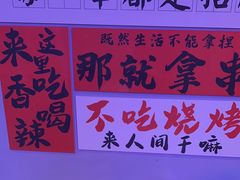 来这里吃香喝辣
既然生活不能拿捏
那就拿串
不吃烧烤
来人间干嘛